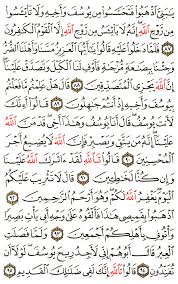 يَـٰبَنِىَّ ٱذْهَبُوا۟ فَتَحَسَّسُوا۟ مِن يُوسُفَ وَأَخِيهِ وَلَا تَا۟يْـَٔسُوا۟
مِن رَّوْحِ ٱللَّهِ إِنَّهُۥ لَا يَا۟يْـَٔسُ مِن رَّوْحِ ٱللَّهِ إِلَّا ٱلْقَوْمُ ٱلْكَـٰفِرُونَ
٨٧ فَلَمَّا دَخَلُوا۟ عَلَيْهِ قَالُوا۟ يَـٰٓأَيُّهَا ٱلْعَزِيزُ مَسَّنَا وَأَهْلَنَا ٱلضُّرُّ
وَجِئْنَا بِبِضَـٰعَةٍ مُّزْجَىٰةٍ فَأَوْفِ لَنَا ٱلْكَيْلَ وَتَصَدَّقْ عَلَيْنَآ
إِنَّ ٱللَّهَ يَجْزِى ٱلْمُتَصَدِّقِينَ ٨٨ قَالَ هَلْ عَلِمْتُم مَّا فَعَلْتُم
بِيُوسُفَ وَأَخِيهِ إِذْ أَنتُمْ جَـٰهِلُونَ ٨٩ قَالُوٓا۟ أَءِنَّكَ
لَأَنتَ يُوسُفُ قَالَ أَنَا۠ يُوسُفُ وَهَـٰذَآ أَخِى قَدْ مَنَّ
ٱللَّهُ عَلَيْنَآ إِنَّهُۥ مَن يَتَّقِ وَيَصْبِرْ فَإِنَّ ٱللَّهَ لَا يُضِيعُ أَجْرَ
ٱلْمُحْسِنِينَ ٩٠ قَالُوا۟ تَٱللَّهِ لَقَدْ ءَاثَرَكَ ٱللَّهُ عَلَيْنَا
وَإِن كُنَّا لَخَـٰطِـِٔينَ ٩١ قَالَ لَا تَثْرِيبَ عَلَيْكُمُ
ٱلْيَوْمَ يَغْفِرُ ٱللَّهُ لَكُمْ وَهُوَ أَرْحَمُ ٱلرَّٰحِمِينَ ٩٢
ٱذْهَبُوا۟ بِقَمِيصِى هَـٰذَا فَأَلْقُوهُ عَلَىٰ وَجْهِ أَبِى يَأْتِ بَصِيرًا
وَأْتُونِى بِأَهْلِكُمْ أَجْمَعِينَ ٩٣ وَلَمَّا فَصَلَتِ
ٱلْعِيرُ قَالَ أَبُوهُمْ إِنِّى لَأَجِدُ رِيحَ يُوسُفَ لَوْلَآ أَن
تُفَنِّدُونِ ٩٤ قَالُوا۟ تَٱللَّهِ إِنَّكَ لَفِى ضَلَـٰلِكَ ٱلْقَدِيمِ ٩٥